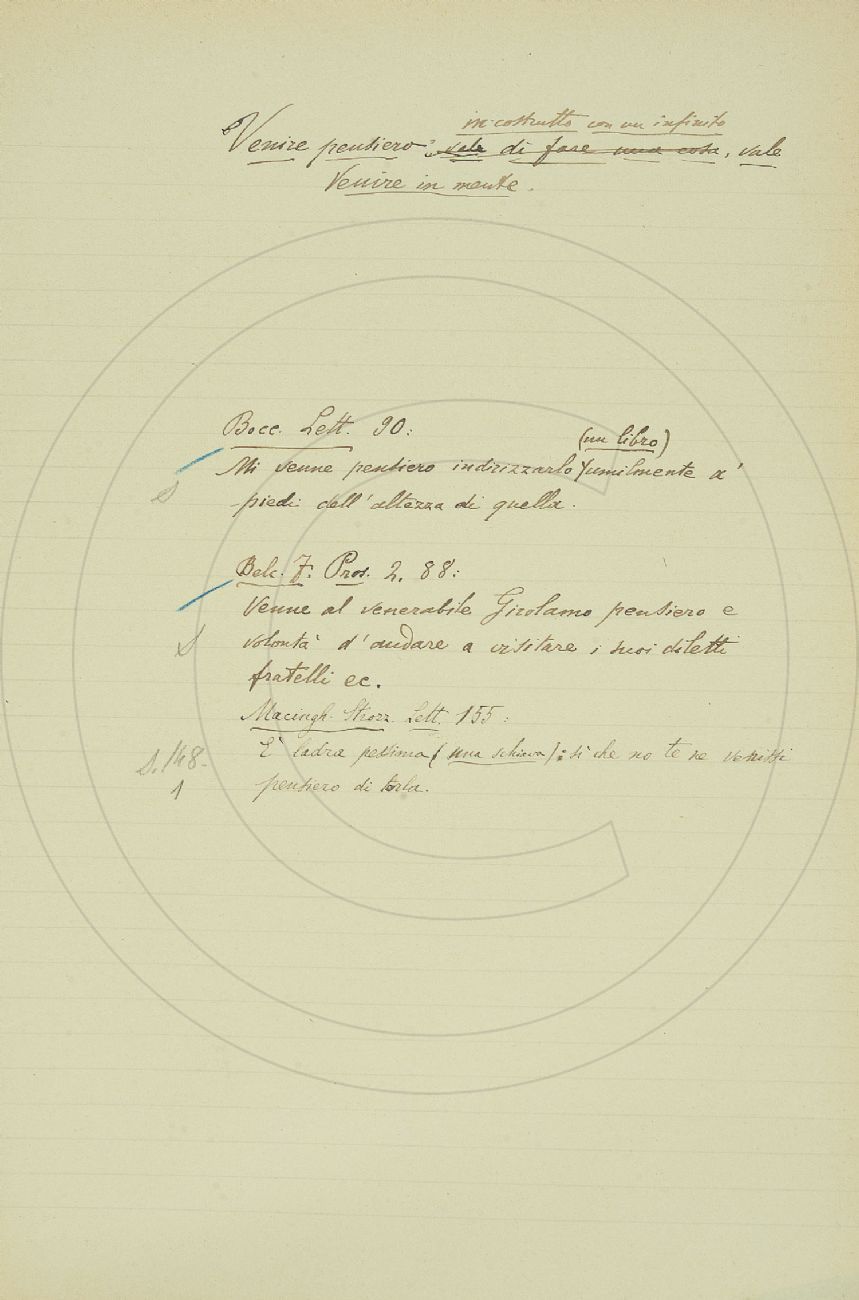 in costrutto con un infinito
Venire pensiero vale di fare una cosa, vale
Venire in mente.
Bocc. Lett. 90:
(un libro)
Mi venne pensiero indirizzarlo umilmente a'
piedi dell'altezza di quella.
Belc. F. Pros. 2. 88:
Venne al venerabile Girolamo pensiero e
volontà d'andare a visitare i suoi diletti
fratelli ec.
Macingh. Strozz. Lett. 155:
È ladra pessima (una schiava): sì che no te ne venissi
S. 148.
pensiero di torla.
1